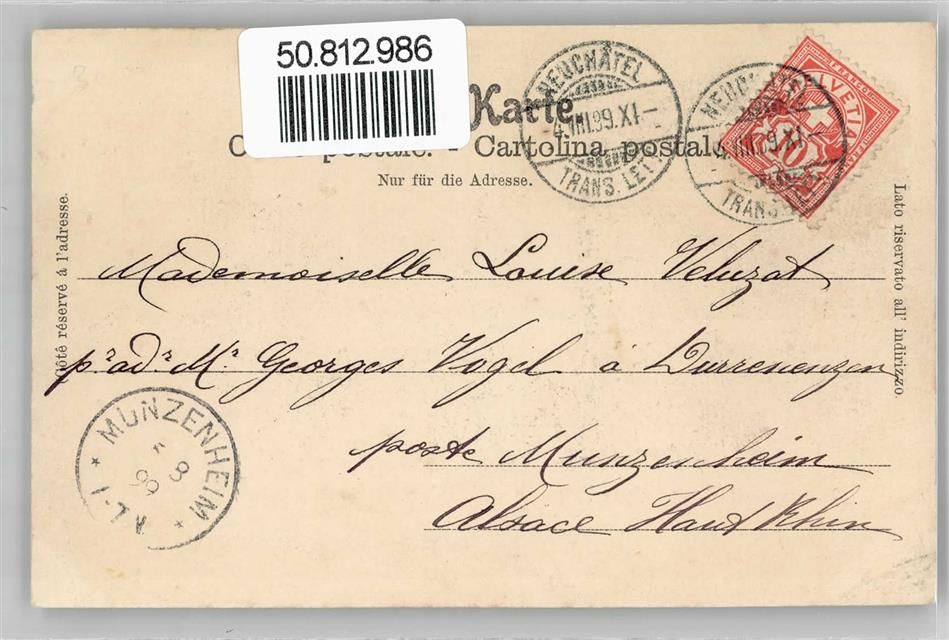 50.812.986
Karte
Cartolina postale
Nur für die Adresse.
NEUCHÂTEL
4.III.99.XI-
TRANS. LET
FRANCO
HELVETIA
10
Côté réservé à l'adresse.
Lato riservato all' indirizzo.
Mademoiselle Louise Veluzat
pr adr Mr Georges Vogel à Durrenenzen
poste Munzenheim
Alsace Haut Rhin
MUNZENHEIM